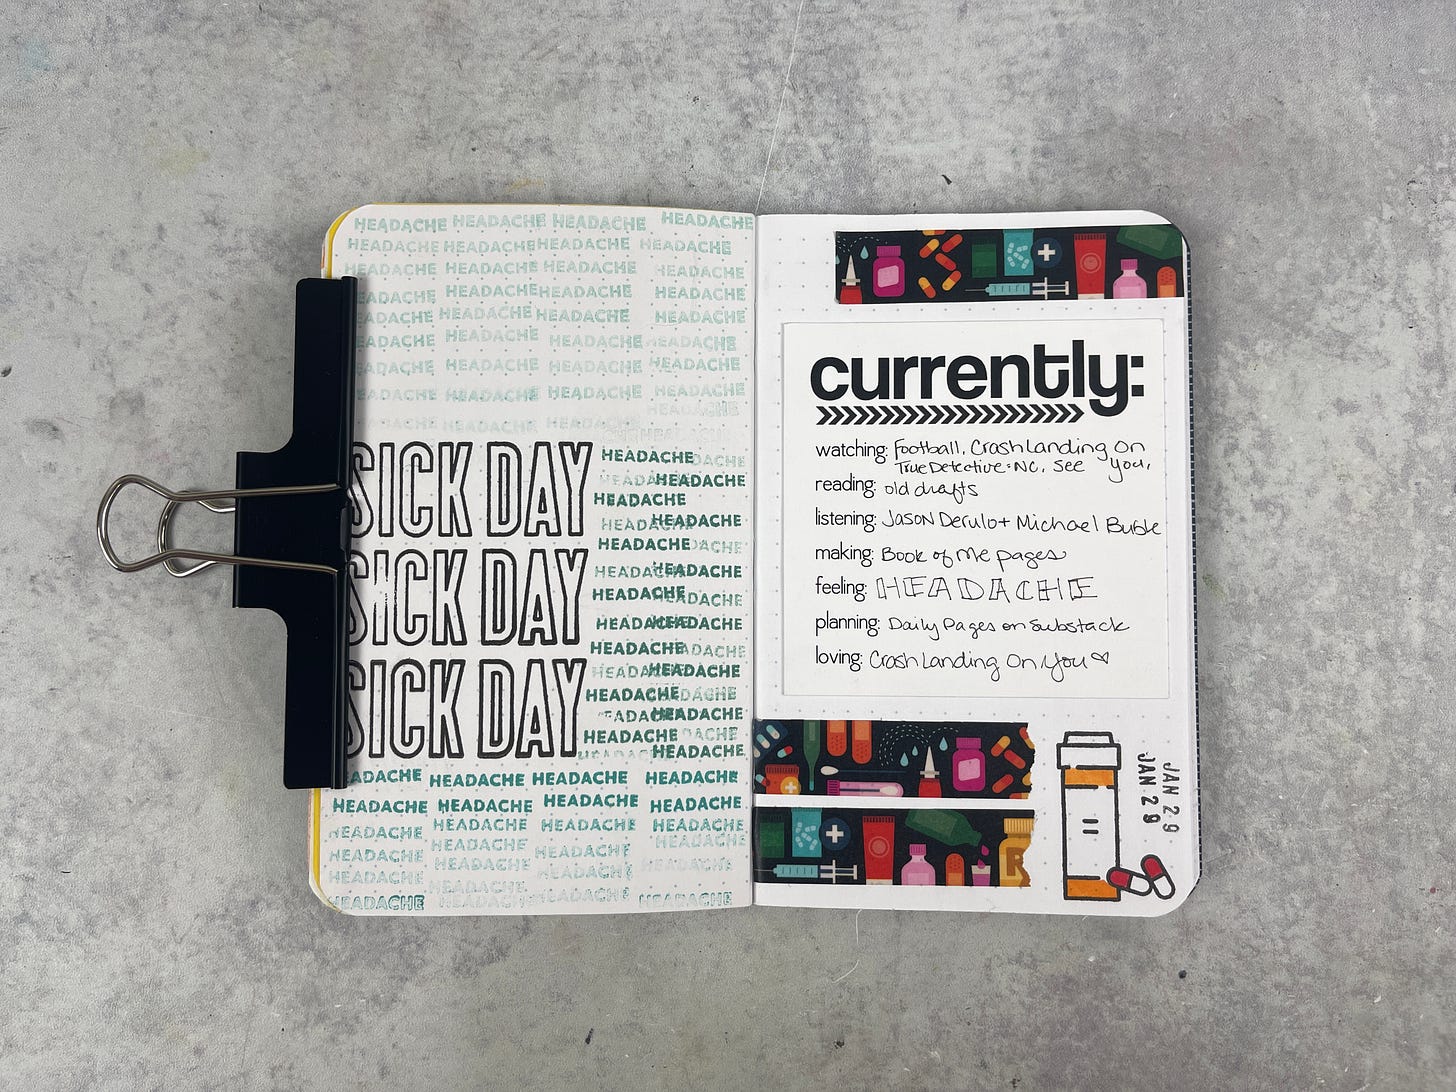 HEADACHE HEADACHE HEADACHE HEADACHE
HEADACHE HEADACHE HEADACHE HEADACHE
HEADACHE HEADACHE HEADACHE HEADACHE
HEADACHE HEADACHE HEADACHE HEADACHE
HEADACHE HEADACHE HEADACHE HEADACHE
HEADACHE HEADACHE HEADACHE HEADACHE
HEADACHE HEADACHE HEADACHE HEADACHE
HEADACHE HEADACHE HEADACHE HEADACHE
HEADACHE
HEADACHE HEADACHE HEADACHE
HEADACHE
SICK DAY
HEADACHE HEADACHE
HEADACHE HEADACHE
HEADACHE
HEADACHE HEADACHE
HEADACHE HEADACHE
SICK DAY
HEADACHE HEADACHE
HEADACHE HEADACHE
HEADACHE HEADACHE
HEADACHE HEADACHE
SICK DAY
HEADACHE HEADACHE
HEADACHE HEADACHE
HEADACHE HEADACHE
HEADACHE HEADACHE
HEADACHE HEADACHE
HEADACHE HEADACHE HEADACHE HEADACHE
HEADACHE HEADACHE HEADACHE HEADACHE
HEADACHE HEADACHE HEADACHE HEADACHE
HEADACHE HEADACHE HEADACHE HEADACHE
HEADACHE HEADACHE HEADACHE HEADACHE
HEADACHE HEADACHE HEADACHE HEADACHE
currently:
watching: Football, Crash Landing On
True Detective: NC, See You,
reading: old drafts
listening: Jason Derulo + Michael Buble
making: Book of Me pages
feeling: HEADACHE
planning: Daily Pages on Substack
loving: Crash Landing On You ♡
R
JAN 29
JAN 29